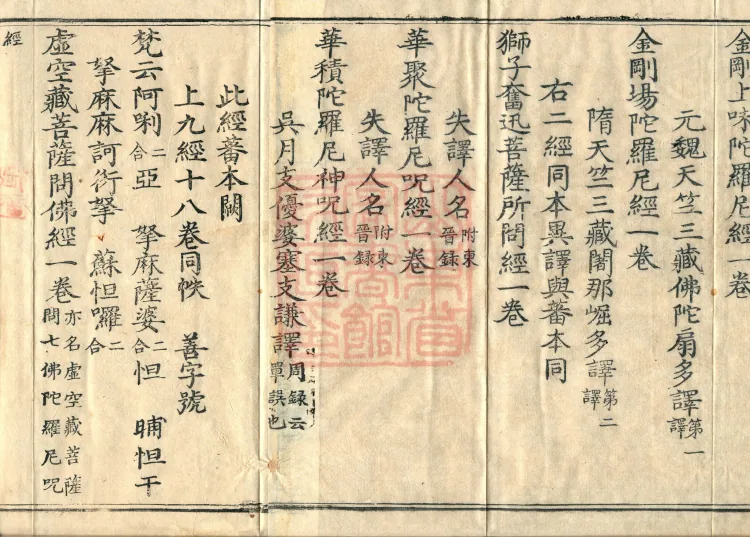 金剛上味陀羅尼經一卷
元魏天竺三藏佛陀扇多譯第一譯
金剛場陀羅尼經一卷
隋天竺三藏闍那崛多譯第二譯
右二經同本異譯與蕃本同
獅子奮迅菩薩所問經一卷
失譯人名附東晉録
華聚陀羅尼呪經一卷
失譯人名附東晉録
華積陀羅尼神呪經一卷
吳月支優婆塞支謙譯周録云單誤也
此經蕃本闕
上九經十八卷同帙 善字號
梵云阿唎二合亞 拏麻薩婆二合怛 晡怛干
拏麻麻訶衍拏 蘇怛囉二合
虛空藏菩薩問佛經一卷亦名虛空藏菩薩問七佛陀羅尼呪
經